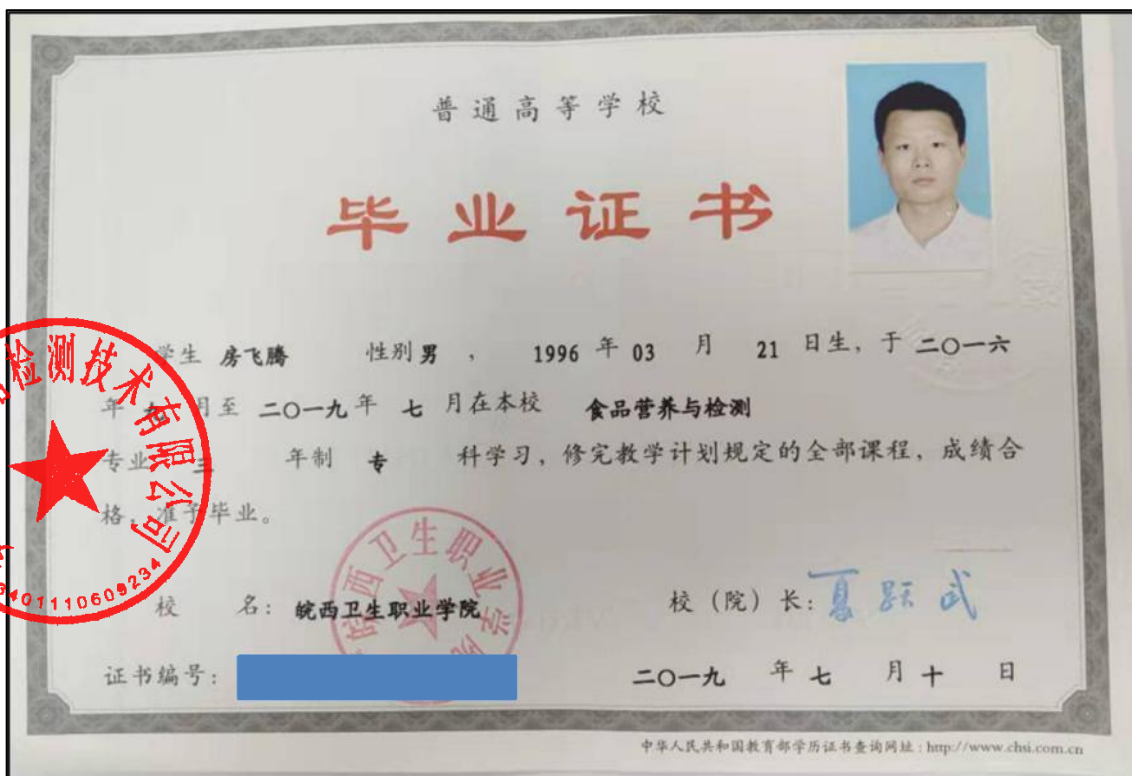 普通高等学校
毕业证书
学生 房飞腾 性别 男 , 1996 年 03 月 21 日生, 于 二〇一六
年 九 月至 二〇一九 年 七 月在本校 食品营养与检测
专业 三 年制 专 科学习, 修完教学计划规定的全部课程, 成绩合
格, 准予毕业。
检测技术有限公司
皖西卫生职业学院
校 名: 皖西卫生职业学院 校(院)长: 夏跃武
证书编号: 二〇一九 年 七 月 十 日
中华人民共和国教育部学历证书查询网址: http://www.chsi.com.cn